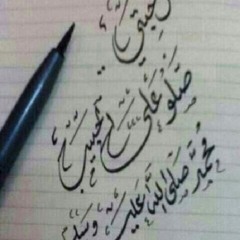 صَلُّو عَلَى الحَبِيب
مُحَمَّد صَلَّى اللهُ عَلَيْهِ وَسَلَّم